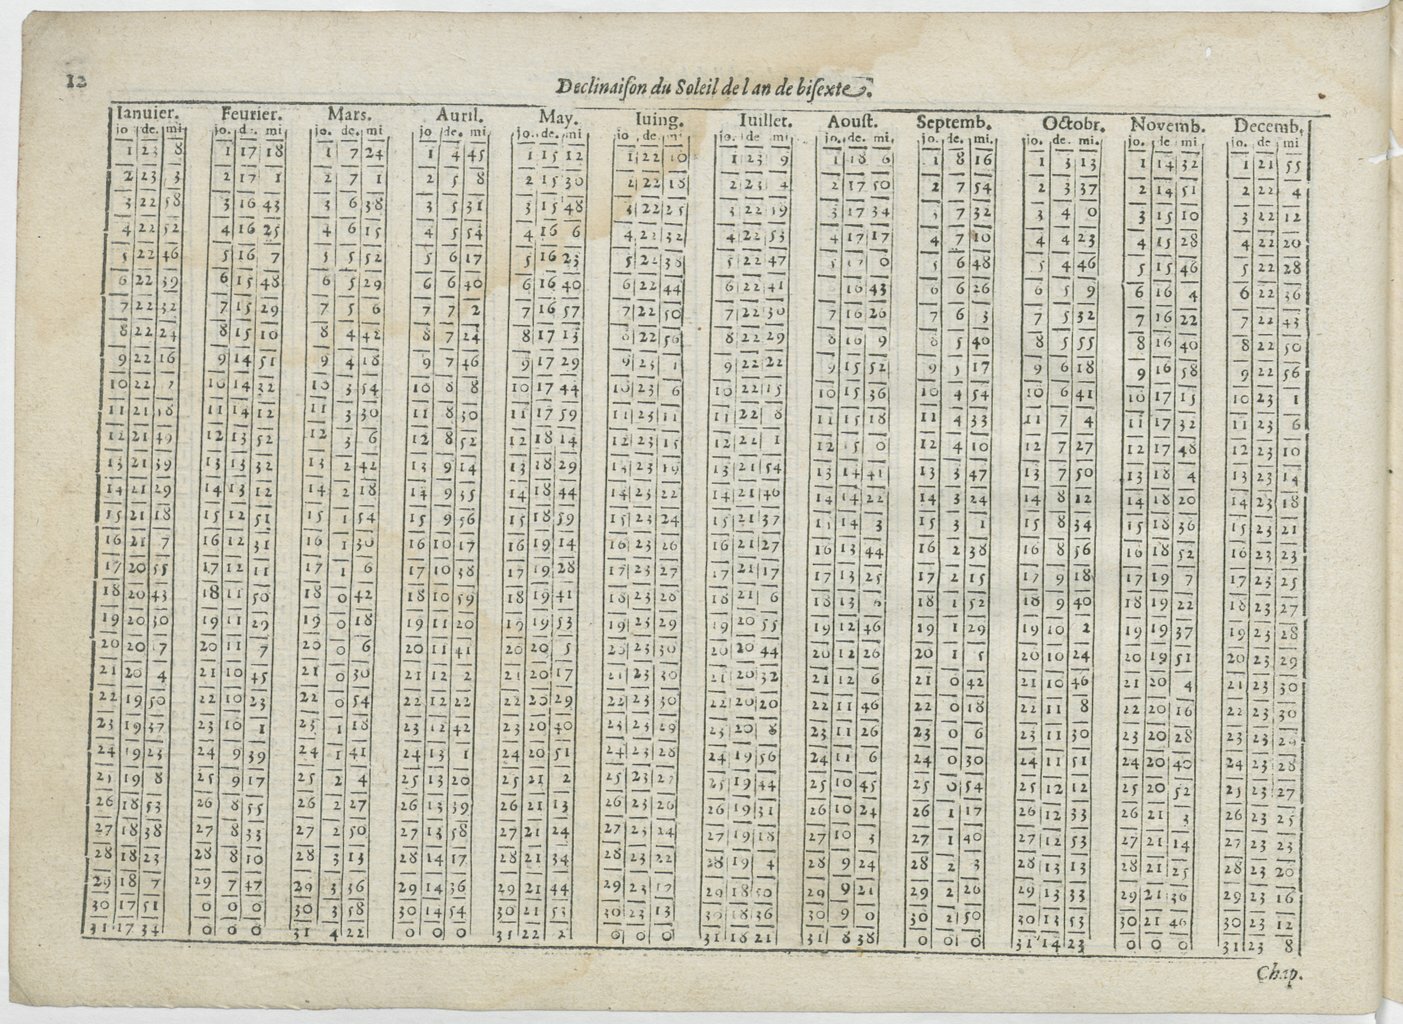 12
Declinaison du Soleil de l an de bisexte.
Ianuier. Feurier. Mars. Auril. May. Iuing. Iuillet. Aoust. Septemb. Octobr. Novemb. Decemb.
jo de. mi jo. d. mi jo. de. mi jo de. mi jo. de. mi jo de mi jo. de. mi jo. de. mi. jo. de. mi. jo. de. mi. jo de mi jo. de. mi
1 23 8 1 17 18 1 7 24 1 4 45 1 15 12 1 22 10 1 23 9 1 18 6 1 8 16 1 3 13 1 14 32 1 21 55
2 23 3 2 17 1 2 7 1 2 5 8 2 15 30 2 22 18 2 23 4 2 17 50 2 7 54 2 3 37 2 14 51 2 22 4
3 22 58 3 16 43 3 6 38 3 5 31 3 15 48 3 22 25 3 22 59 3 17 34 3 7 32 3 4 0 3 15 10 3 22 12
4 22 52 4 16 25 4 6 15 4 5 54 4 16 6 4 22 32 4 22 53 4 17 17 4 7 10 4 4 23 4 15 28 4 22 20
5 22 46 5 16 7 5 5 52 5 6 17 5 16 23 5 22 38 5 22 47 5 17 0 5 6 48 5 4 46 5 15 46 5 22 28
6 22 39 6 15 48 6 5 29 6 6 40 6 16 40 6 22 44 6 22 41 16 43 6 6 26 6 5 9 6 16 4 6 22 36
7 22 32 7 15 29 7 5 6 7 7 2 7 16 57 7 22 50 7 22 30 7 16 26 7 6 3 7 5 32 7 16 22 7 22 43
8 22 24 8 15 10 8 4 42 8 7 24 8 17 13 8 22 56 8 22 29 8 16 9 8 5 40 8 5 55 8 16 40 8 22 50
9 22 16 9 14 51 9 4 18 9 7 46 9 17 29 9 23 1 9 22 22 9 15 52 9 5 17 9 6 18 9 16 58 9 22 56
10 22 7 10 14 32 10 3 54 10 8 8 10 17 44 10 23 6 10 22 15 10 15 36 10 4 54 10 6 41 10 17 15 10 23 1
11 21 58 11 14 12 11 3 30 11 8 30 11 17 59 11 23 11 11 22 8 11 15 18 11 4 33 11 7 4 11 17 32 11 23 6
12 21 49 12 13 52 12 3 6 12 8 52 12 18 14 12 23 15 12 22 1 12 15 0 12 4 10 12 7 27 12 17 48 12 23 10
13 21 39 13 13 32 13 2 42 13 9 14 13 18 29 13 23 19 13 21 54 13 14 41 13 3 47 13 7 50 13 18 4 13 23 14
14 21 29 14 13 12 14 2 18 14 9 35 14 18 44 14 23 22 14 21 46 14 14 22 14 3 24 14 8 12 14 18 20 14 23 18
15 21 18 15 12 51 15 1 54 15 9 56 15 18 59 15 23 24 15 21 37 15 14 3 15 3 1 15 8 34 15 18 36 15 23 21
16 21 7 16 12 31 16 1 30 16 10 17 16 19 14 16 23 26 16 21 27 16 13 44 16 2 38 16 8 56 16 18 52 16 23 23
17 20 55 17 12 11 17 1 6 17 10 38 17 19 28 17 23 27 17 21 17 17 13 25 17 2 15 17 9 18 17 19 7 17 23 25
18 20 43 18 11 50 18 0 42 18 10 59 18 19 41 18 23 28 18 21 6 18 13 6 18 1 52 18 9 40 18 19 22 18 23 27
19 20 30 19 11 29 19 0 18 19 11 20 19 19 53 19 23 29 19 20 55 19 12 46 19 1 29 19 10 2 19 19 37 19 23 28
20 20 17 20 11 7 20 0 6 20 11 41 20 20 5 20 23 30 20 20 44 20 12 26 20 1 5 20 10 24 20 19 51 20 23 29
21 20 4 21 10 45 21 0 30 21 12 2 21 20 17 21 23 30 21 20 32 21 12 6 21 0 42 21 10 46 21 20 4 21 23 30
22 19 50 22 10 23 22 0 54 22 12 22 22 20 29 22 23 30 22 20 20 22 11 46 22 0 18 22 11 8 22 20 16 22 23 30
23 19 37 23 10 1 23 1 18 23 12 42 23 20 40 23 23 29 23 20 8 23 11 26 23 0 6 23 11 30 23 20 28 23 23 29
24 19 23 24 9 39 24 1 41 24 13 1 24 20 51 24 23 28 24 19 56 24 11 6 24 0 30 24 11 51 24 20 40 24 23 28
25 19 8 25 9 17 25 2 4 25 13 20 25 21 2 25 23 27 25 19 44 25 10 45 25 0 54 25 12 12 25 20 52 25 23 27
26 18 53 26 8 55 26 2 27 26 13 39 26 21 13 26 23 26 26 19 31 26 10 24 26 1 17 26 12 33 26 21 3 26 23 25
27 18 38 27 8 33 27 2 50 27 13 58 27 21 24 27 23 24 27 19 18 27 10 3 27 1 40 27 12 53 27 21 14 27 23 23
28 18 23 28 8 10 28 3 13 28 14 17 28 21 34 28 23 22 28 19 4 28 9 24 28 2 3 28 13 13 28 21 25 28 23 20
29 18 7 29 7 47 29 3 36 29 14 36 29 21 44 29 23 17 29 18 50 29 9 21 29 2 26 29 13 33 29 21 36 29 23 16
30 17 51 0 0 0 30 3 58 30 14 54 30 21 53 30 23 13 30 18 36 30 9 0 30 2 50 30 13 53 30 21 46 30 23 12
31 17 34 0 0 0 31 4 22 0 0 0 31 22 2 0 0 0 31 18 21 31 8 38 0 0 0 31 14 23 0 0 0 31 23 8
Chap.